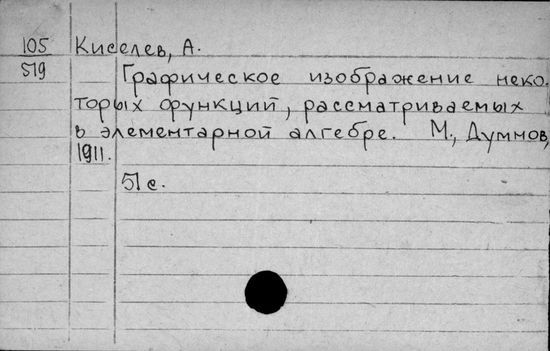 105 Киселев, А.
519 Графическое изображение неко-
торых функций, рассматриваемых
в элементарной алгебре. М., Думнов,
1911.
51 с.